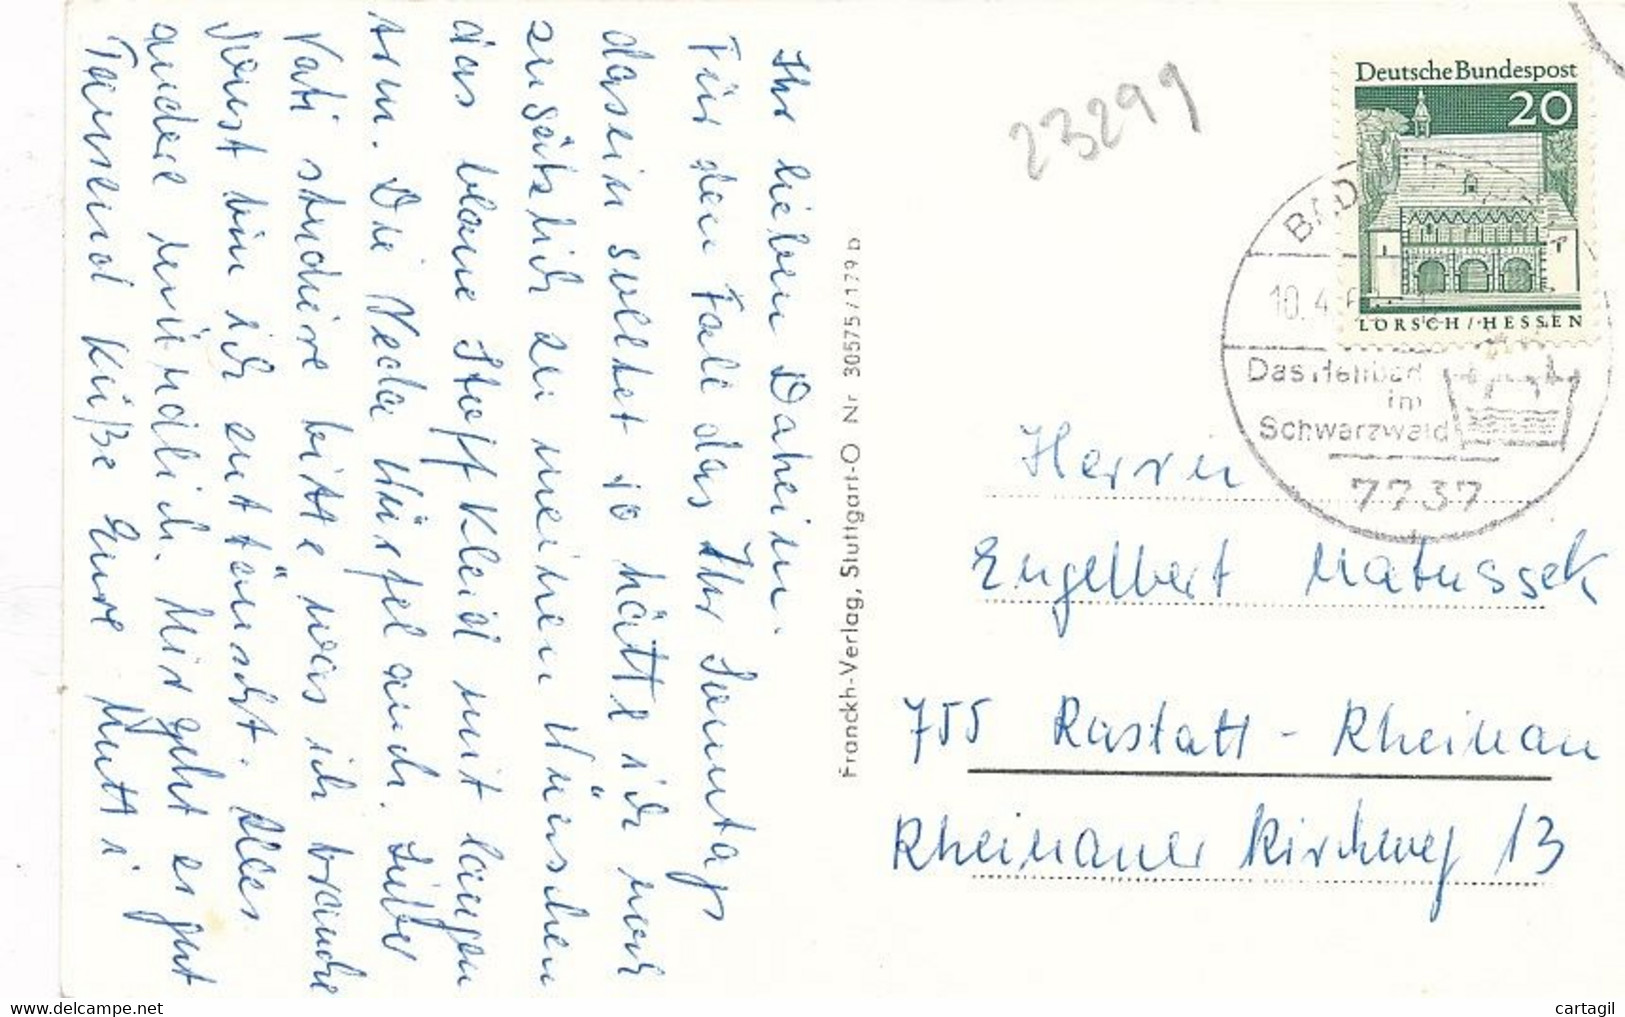 Ihr lieben Daheim.
Für den Fall das Ihr Sonntags
dasein solltet so hätte ich noch
zusätzlich zu meinen Wünschen
das blaue Stoffkleid mit langen
Arm. Die Veda Würfel auch. Lieber
Vati studiere bitte was ich brauche
sonst bin ich enttäuscht. Alles
andere mündlich. Mir geht es gut
Tausend Küße Eure Mutti
Franckh-Verlag, Stuttgart-O Nr 30575/179 b
23299
Deutsche Bundespost
20
LORSCH/HESSEN
BAD
10.4.6
Das Heilbad
im
Schwarzwald
7737
Herrn
Engelbert Matussek
755 Rastatt - Rheinau
Rheinauer Kirchweg 13
cartagil